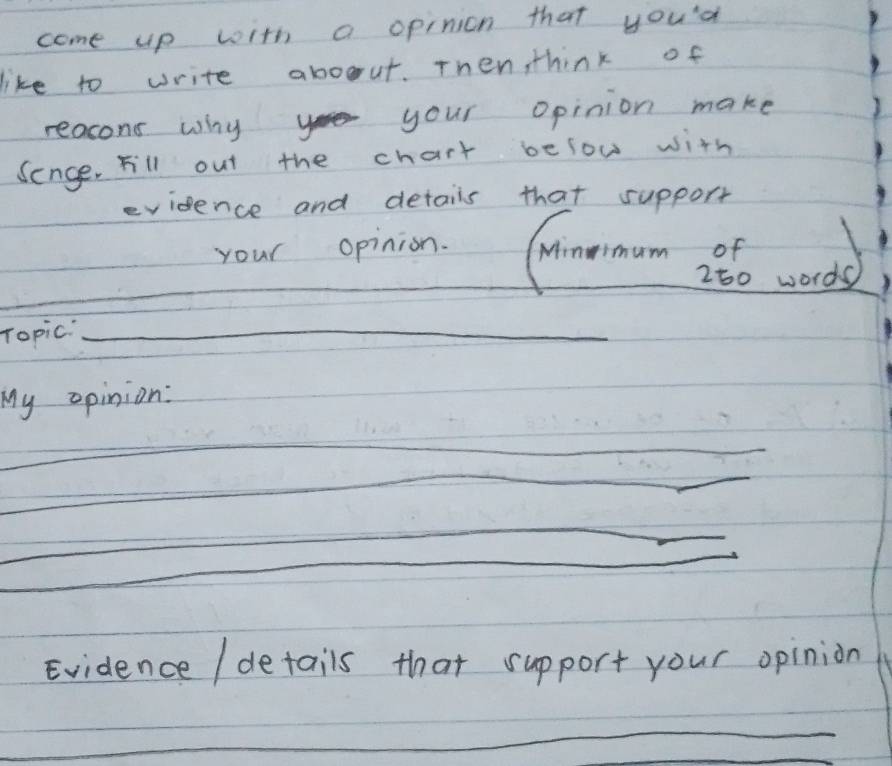 come up with a opinion that you'd
like to write about. Then, think of
reasons why your opinion make
sense. Fill out the chart below with
evidence and details that support
your opinion. (Minimum of
250 words)
Topic:
My opinion:
Evidence/details that support your opinion